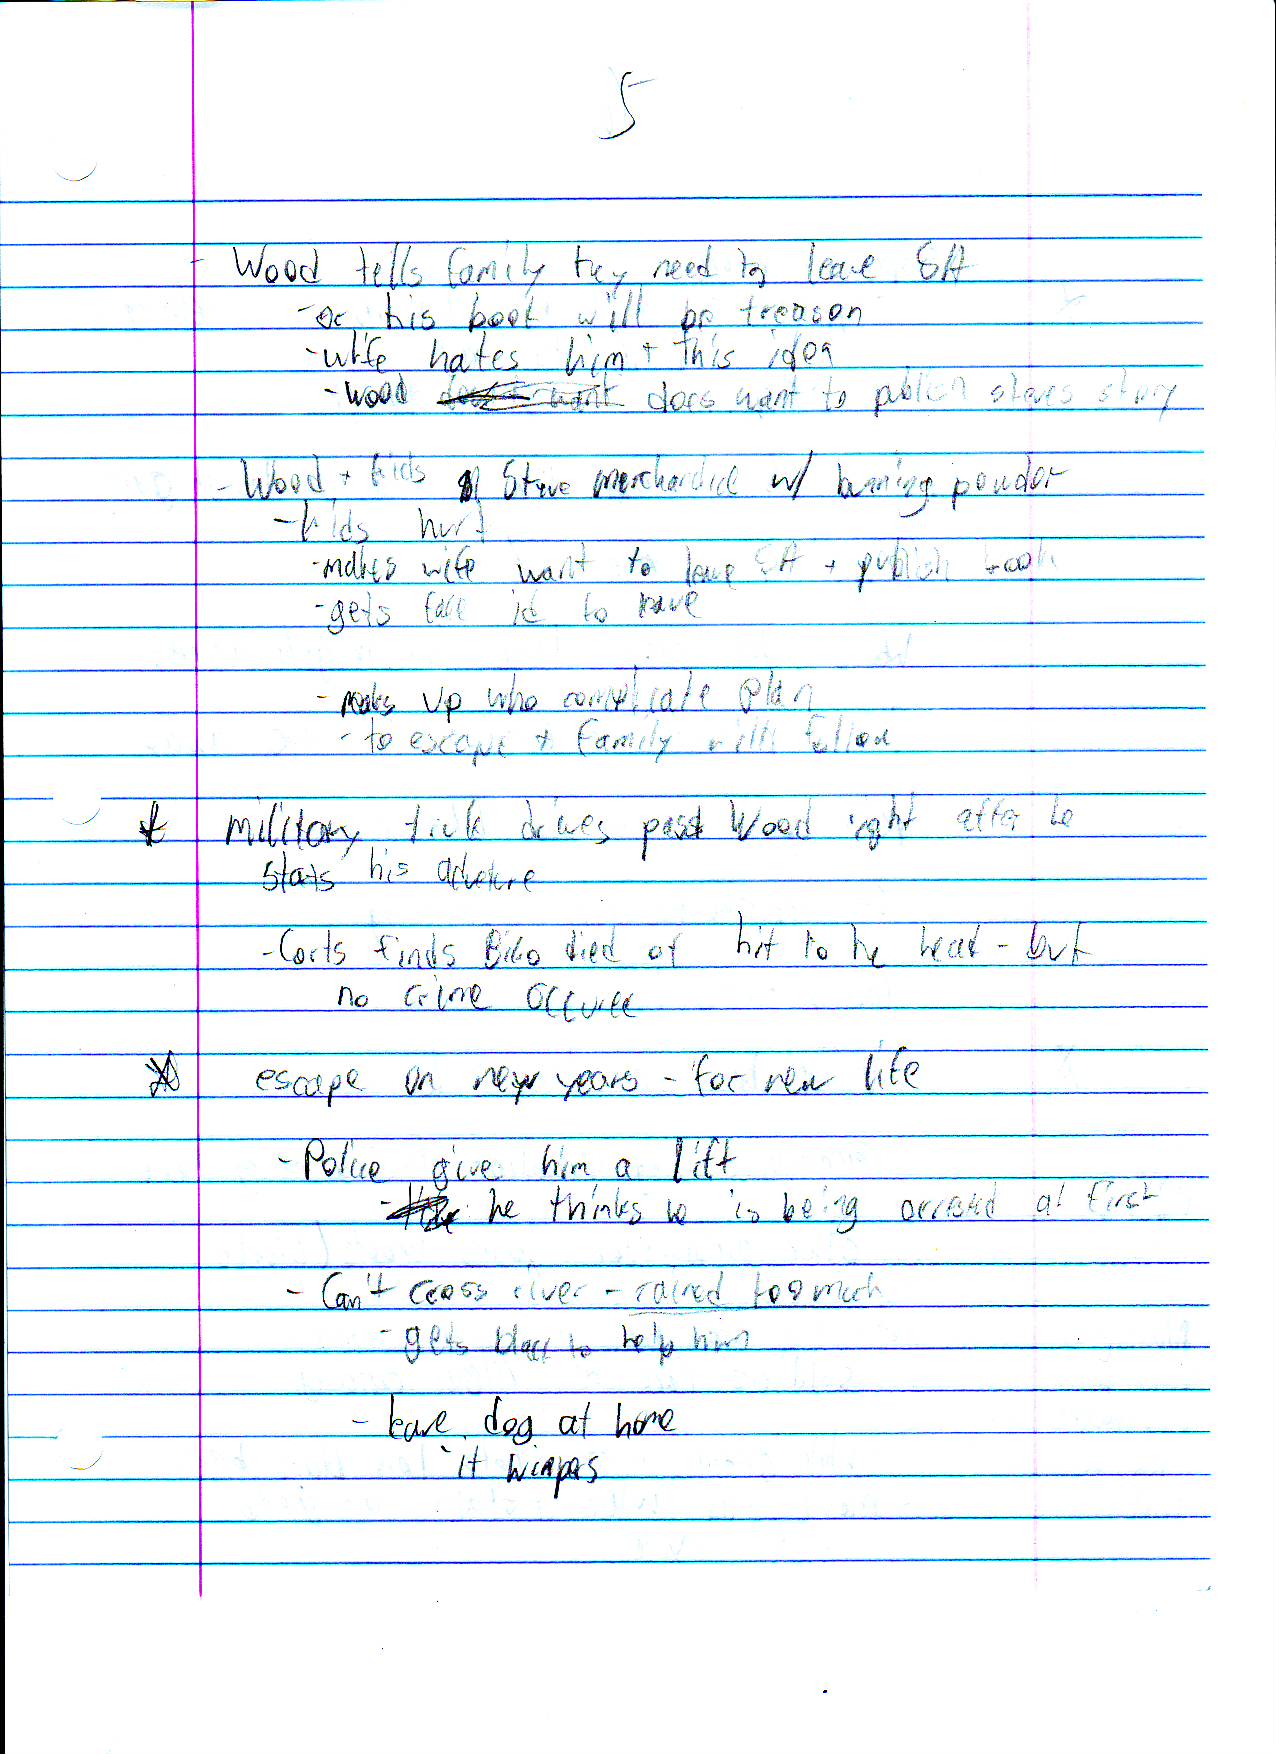 5
- Wood tells family they need to leave SA
- or his book will be treason
- wife hates him + this idea
- Wood does want to publish steves story
- Wood + kids Steve merchandice w/ burning powder
- kids hurt
- makes wife want to leave SA + publish book
- gets fake id to leave
- makes up who complicate plan
- to escape + family will follow
military truck drives past Wood right after he
starts his adveture
- Corts finds Biko died of hit to he head - but
no crime occure
escape on new years - for new life
- Police give him a lift
- he thinks he is being arrested at first
- Can't cross river - rained too much
- gets black to help him
- leave dog at home
- it wimpers